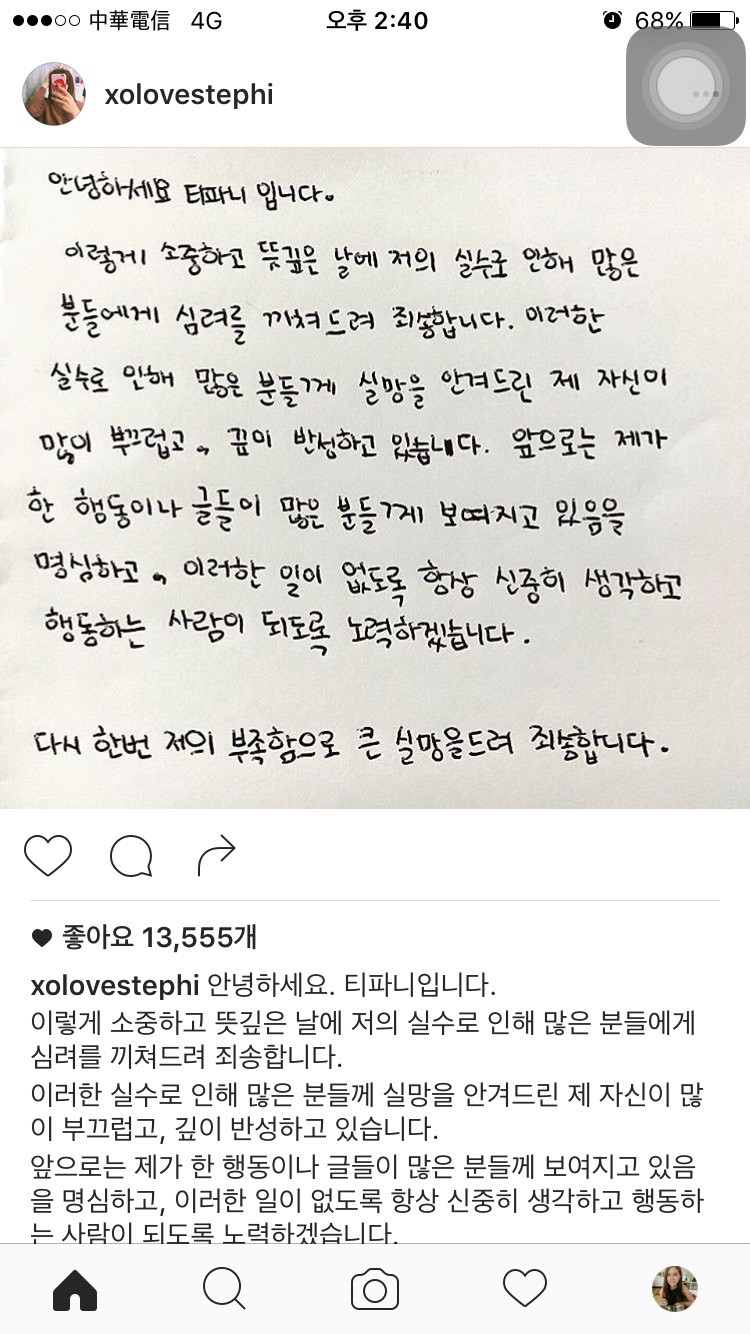 中華電信 4G 오후 2:40 68%
xolovestephi
안녕하세요 티파니 입니다.
이렇게 소중하고 뜻깊은 날에 저의 실수로 인해 많은
분들에게 심려를 끼쳐드려 죄송합니다. 이러한
실수로 인해 많은 분들께 실망을 안겨드린 제 자신이
많이 부끄럽고, 깊이 반성하고 있습니다. 앞으로는 제가
한 행동이나 글들이 많은 분들께 보여지고 있음을
명심하고, 이러한 일이 없도록 항상 신중히 생각하고
행동하는 사람이 되도록 노력하겠습니다.
다시 한번 저의 부족함으로 큰 실망을드려 죄송합니다.
좋아요 13,555개
xolovestephi 안녕하세요. 티파니입니다.
이렇게 소중하고 뜻깊은 날에 저의 실수로 인해 많은 분들에게
심려를 끼쳐드려 죄송합니다.
이러한 실수로 인해 많은 분들께 실망을 안겨드린 제 자신이 많
이 부끄럽고, 깊이 반성하고 있습니다.
앞으로는 제가 한 행동이나 글들이 많은 분들께 보여지고 있음
을 명심하고, 이러한 일이 없도록 항상 신중히 생각하고 행동하
는 사람이 되도록 노력하겠습니다.